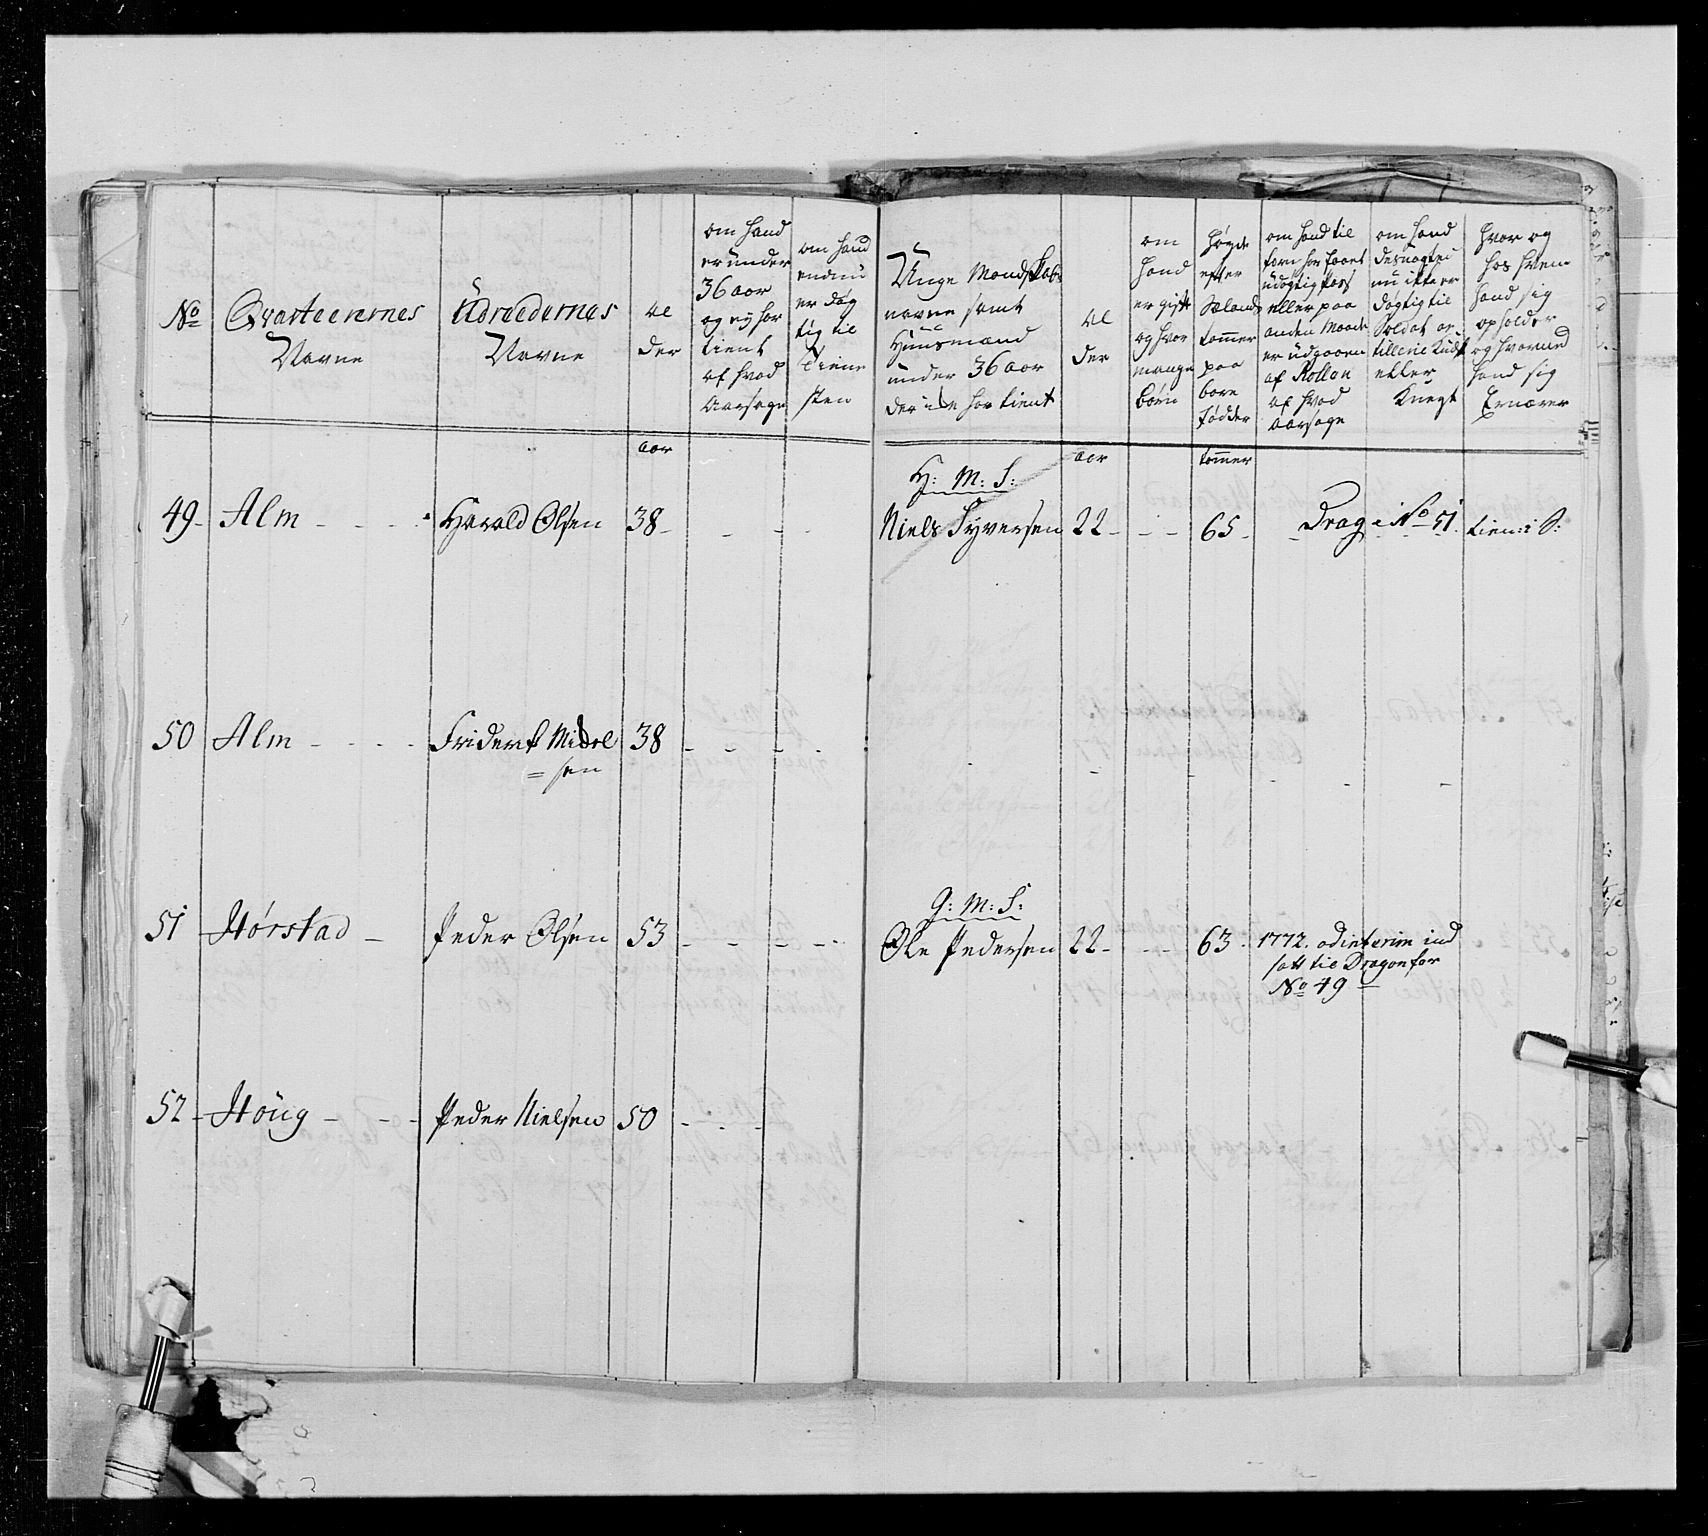 No
Qvarteerernes
Navne
Udreedernes
Navne
al
der
om hand
er under
36 aar
og ey har
tient
af hvad
Aarsage
om hand
endnu
er døg
tig til
Tienne
sten
Unge Mandskabs
navne samt
Huusmænd
under 36 aar
der icke har tient
al
der
om
hand
er gift
og hvor
mange
børn
høyde
efter
Sælands
tommer
paa
bare
fødder
om hand til
forn har faaet
udøgtig Pass
eller paa
anden Maade
er udgaaen
af Rollen
af hvad
aarsage
om hand
desuagtet
nu ikke er
døgtig til
Soldat ar-
tillerie Kudsk
eller
Knegt
hvor og
hos hvem
hand sig
opholder
og hvormed
hand sig
Ernærer
aar
aar
tommer
H: M: S:
49- Alm - - - - Harald Olsen 38- - - - Niels Syversen 22- - - 65- Drag: No 51. tien: i S:
50 Alm - - - - Friderich Mickel 38 - - - -
= sen
G: M: S:
51 Hørstad - Peder Olsen 53 - - - - Ole Pedersen 22- - - 63. 1772. ad interim ind
satt til Dragon for
No 49 -
52- Houg - - - Peder Nielsen 50 - - -